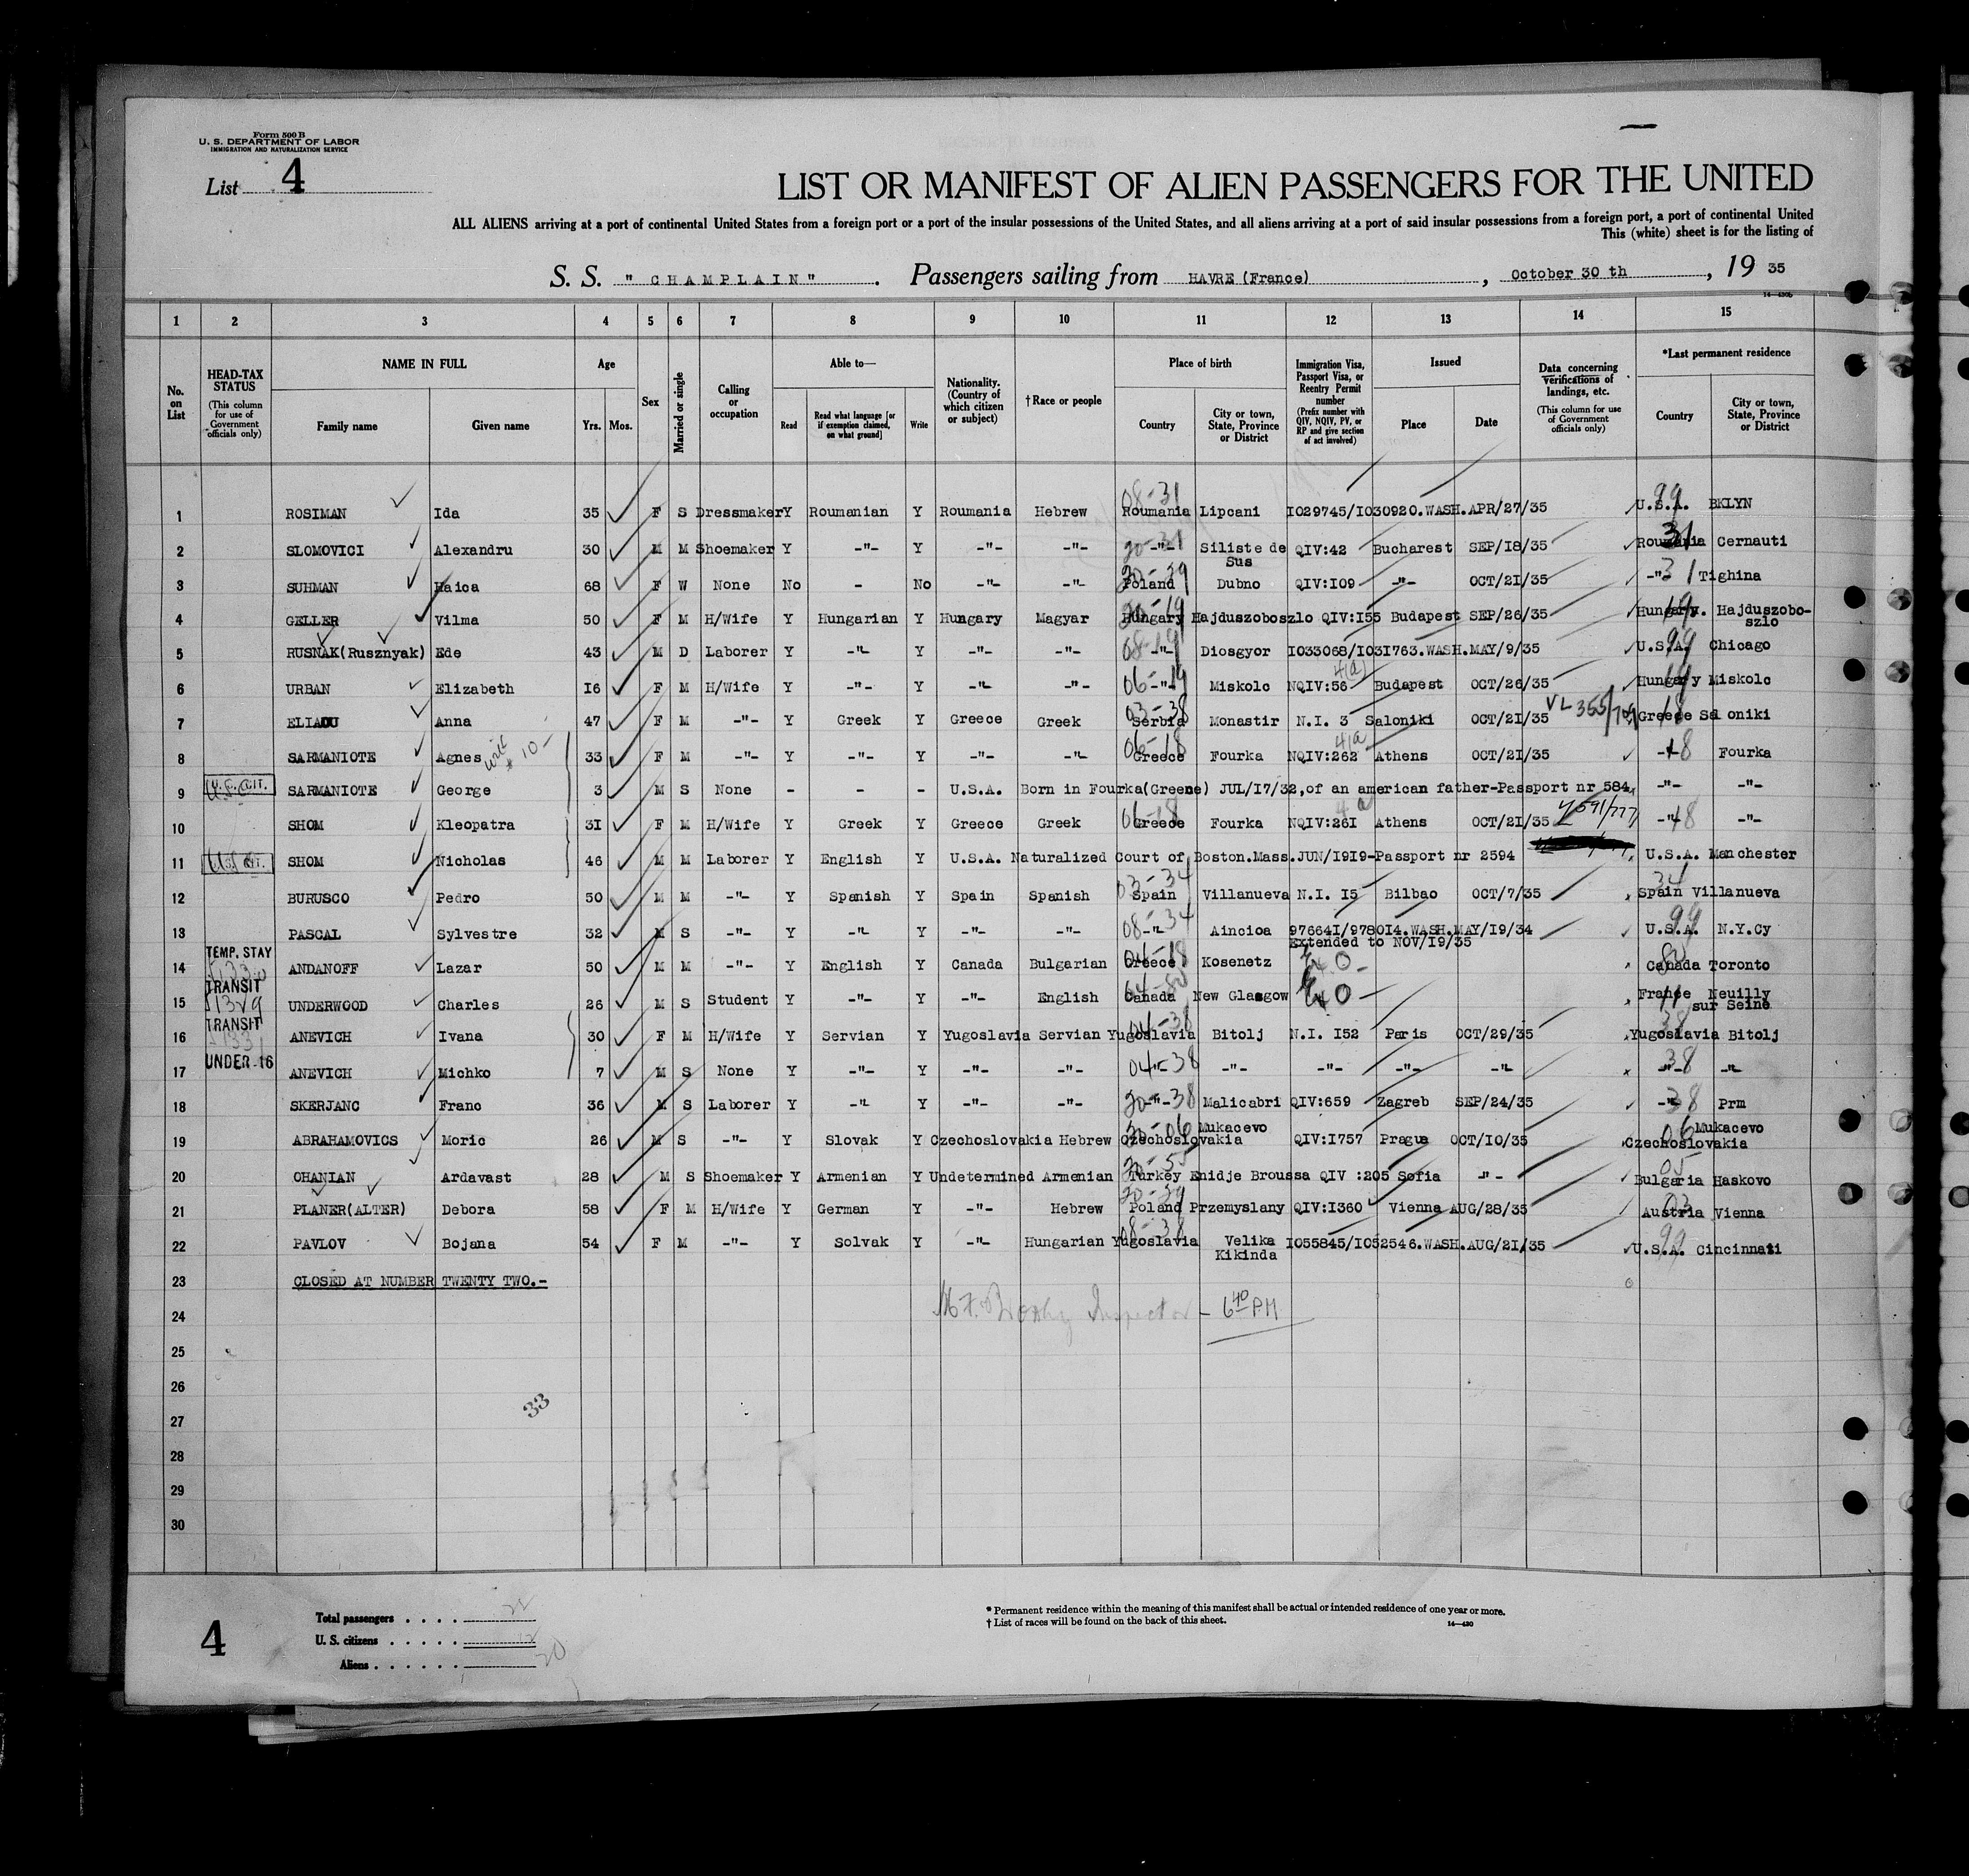 Form 500 B
U. S. DEPARTMENT OF LABOR
IMMIGRATION AND NATURALIZATION SERVICE
List 4
LIST OR MANIFEST OF ALIEN PASSENGERS FOR THE UNITED
ALL ALIENS arriving at a port of continental United States from a foreign port or a port of the insular possessions of the United States, and all aliens arriving at a port of said insular possessions from a foreign port, a port of continental United
This (white) sheet is for the listing of
S. S. " CHAMPLAIN ". Passengers sailing from HAVRE (France), October 30 th, 19 35
14—430b
1 2 3 4 5 6 7 8 9 10 11 12 13 14 15
No. on List
HEAD-TAX STATUS (This column for use of Government officials only)
NAME IN FULL Family name Given name
Age Yrs. Mos.
Sex
Married or single
Calling or occupation
Able to— Read Read what language [or if exemption claimed, on what ground] Write
Nationality. (Country of which citizen or subject)
†Race or people
Place of birth Country City or town, State, Province or District
Immigration Visa, Passport Visa, or Reentry Permit number (Prefix number with QIV, NQIV, PV, or RP and give section of act involved)
Issued Place Date
Data concerning verifications of landings, etc. (This column for use of Government officials only)
*Last permanent residence Country City or town, State, Province or District
1 ROSIMAN Ida 35 F S Dressmaker Y Roumanian Y Roumania Hebrew 08-31 Roumania Lipcani I029745/I030920.WASH.APR/27/35 99 U.S.A. BKLYN
2 SLOMOVICI Alexandru 30 M M Shoemaker Y -"- Y -"- -"- 20-31 -"- Siliste de Sus QIV:42 Bucharest SEP/I8/35 31 Roumania Cernauti
3 SUHMAN Haica 68 F W None No - No -"- -"- 20-39 Poland Dubno QIV:I09 -"- OCT/2I/35 31 -"- Tighina
4 GELLER Vilma 50 F M H/Wife Y Hungarian Y Hungary Magyar 20-19 Hungary Hajduszoboszlo QIV:I55 Budapest SEP/26/35 19 Hungary. Hajduszobo-szlo
5 RUSNAK(Rusznyak) Ede 43 M D Laborer Y -"- Y -"- -"- 08-19 -"- Diosgyor I033068/I03I763.WASH.MAY/9/35 99 U.S.A. Chicago
6 URBAN Elizabeth I6 F M H/Wife Y -"- Y -"- -"- 06-19 -"- Miskolc NQIV:56 4(a) Budapest OCT/26/35 19 Hungary Miskolc
7 ELIADU Anna 47 F M -"- Y Greek Y Greece Greek 03-38 Serbia Monastir N.I. 3 Saloniki OCT/2I/35 VL 355/709 18 Greece Sa oniki
8 SARMANIOTE Agnes wife 10- 33 F M -"- Y -"- Y -"- -"- 06-18 Greece Fourka NQIV:262 4/a Athens OCT/2I/35 18 -"- Fourka
9 U.S. CIT. SARMANIOTE George 3 M S None - - - U.S.A. Born in Fourka(Greene) JUL/I7/32,of an american father-Passport nr 584 -"- -"-
10 SHOM Kleopatra 3I F M H/Wife Y Greek Y Greece Greek 06-18 Greece Fourka NQIV:26I 4 a Athens OCT/2I/35 591/777 18 -"- -"-
11 U.S. CIT. SHOM Nicholas 46 M M Laborer Y English Y U.S.A. Naturalized Court of Boston.Mass.JUN/I9I9-Passport nr 2594 U.S.A. Manchester
12 BURUSCO Pedro 50 M M -"- Y Spanish Y Spain Spanish 03-34 Spain Villanueva N.I. I5 Bilbao OCT/7/35 34 Spain Villanueva
13 PASCAL Sylvestre 32 M S -"- Y -"- Y -"- -"- 08-34 -"- Aincioa 97664I/9780I4.WASH.MAY/I9/34 Extended to NOV/I9/35 99 U.S.A. N.Y.Cy
14 TEMP. STAY ANDANOFF Lazar 50 M M -"- Y English Y Canada Bulgarian 04-18 Greece Kosenetz 80 Canada Toronto
15 TRANSIT 1329 UNDERWOOD Charles 26 M S Student Y -"- Y -"- English 04-80 Canada New Glasgow France Neuilly sur Seine
16 TRANSIT ANEVICH Ivana 30 F M H/Wife Y Servian Y Yugoslavia Servian 04-38 Yugoslavia Bitolj N.I. I52 Paris OCT/29/35 38 Yugoslavia Bitolj
17 UNDER-16 ANEVICH Michko 7 M S None Y -"- Y -"- -"- 04-38 -"- -"- -"- -"- -"- 38 -"- -"-
18 SKERJANC Franc 36 M S Laborer Y -"- Y -"- -"- 20-38 -"- Malicabri QIV:659 Zagreb SEP/24/35 38 -"- Prm
19 ABRAHAMOVICS Moric 26 M S -"- Y Slovak Y Czechoslovakia Hebrew 20-06 Czechoslovakia Mukacevo QIV:I757 Prague OCT/I0/35 06 Czechoslovakia Mukacevo
20 OHANIAN Ardavast 28 M S Shoemaker Y Armenian Y Undetermined Armenian 20-55 Turkey Enidje Broussa QIV :205 Sofia -"- 05 Bulgaria Haskovo
21 PLANER(ALTER) Debora 58 F M H/Wife Y German Y -"- Hebrew 20-39 Poland Przemyslany QIV:I360 Vienna AUG/28/35 03 Austria Vienna
22 PAVLOV Bojana 54 F M -"- Y Solvak Y -"- Hungarian 08-38 Yugoslavia Velika Kikinda I055845/I052546.WASH.AUG/2I/35 99 U.S.A. Cincinnati
23 CLOSED AT NUMBER TWENTY TWO.-
24 Inspector - 6 40 P.M
25
26
27 33
28
29
30
4
Total passengers . . . . 22
U. S. citizens . . . . .
Aliens . . . . . . 20
* Permanent residence within the meaning of this manifest shall be actual or intended residence of one year or more.
† List of races will be found on the back of this sheet.
14—430